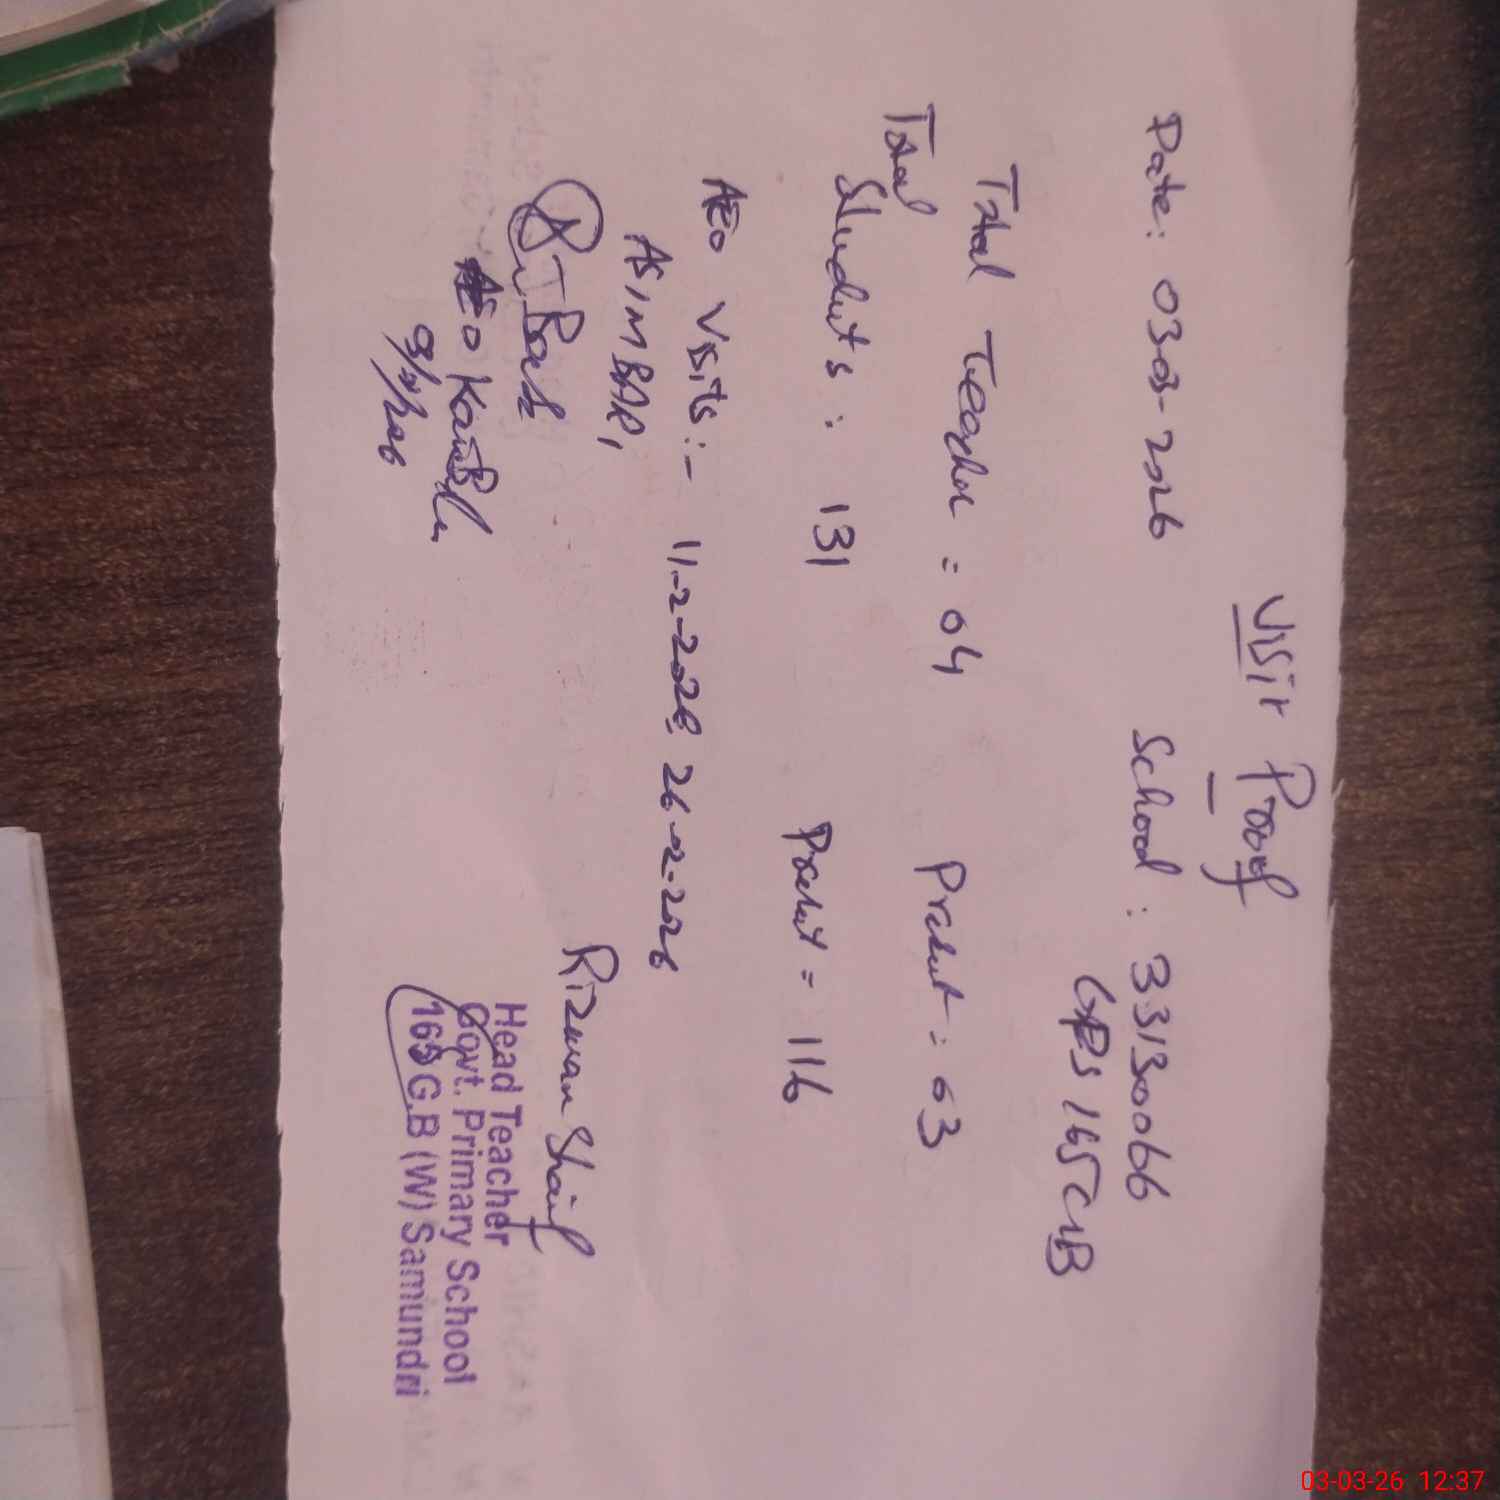 Visit Proof
Date: 03-03-2026 School: 33130066
GPS 165 GB
Total Teacher = 04 Present = 03
Total
Students: 131 Present = 116
AEO Visits:- 11-2-2026, 26-2-2026
ASIM BAR,
Rizwan Sharif
AEO
Head Teacher
Govt. Primary School
165 G.B (W) Samundri
03-03-26 12:37